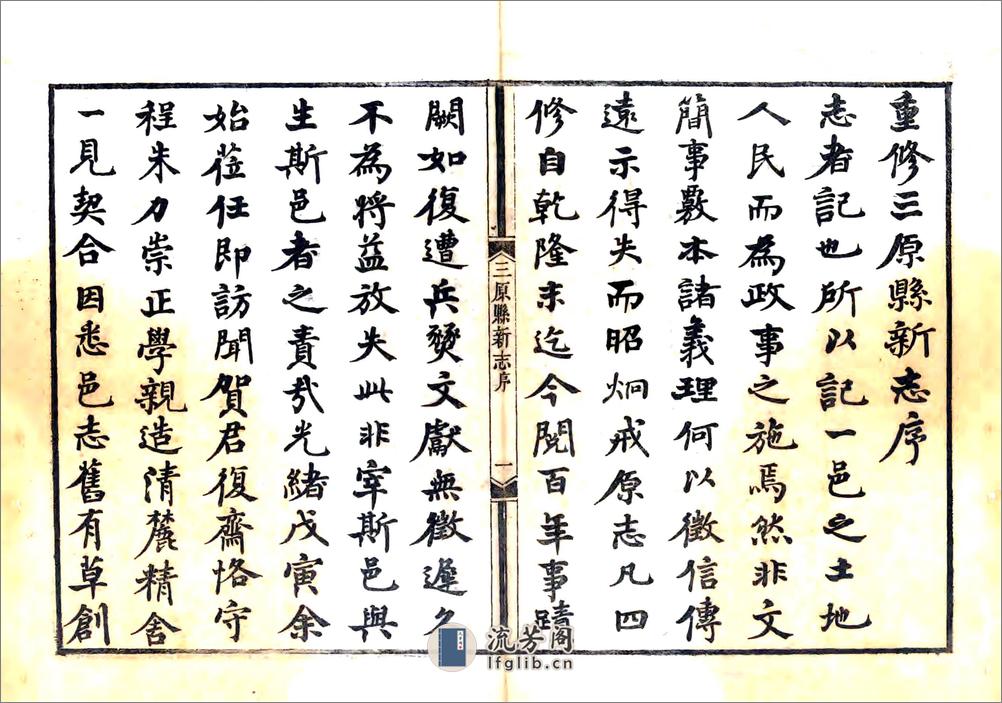 重修三原縣新志序
志者記也所以記一邑之土地
人民而為政事之施焉然非文
簡事覈本諸義理何以徵信傳
遠示得失而昭炯戒原志凡四
修自乾隆末迄今閱百年事蹟
三原縣新志序
一
闕如復遭兵燹文獻無徵遲久
不為將益放失此非宰斯邑與
生斯邑者之責哉光緒戊寅余
始蒞任即訪聞賀君復齋恪守
程朱力崇正學親造清麓精舍
一見契合因悉邑志舊有草創
流芳阁
lfglib.cn